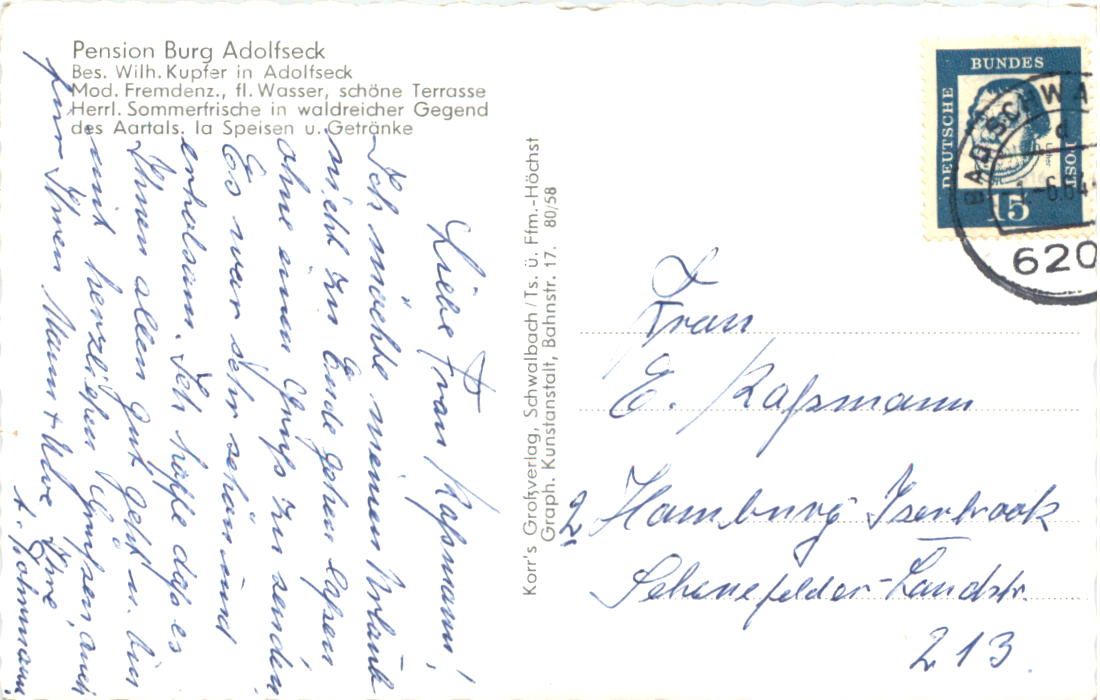 Pension Burg Adolfseck
Bes. Wilh. Kupfer in Adolfseck
Mod. Fremdenz., fl. Wasser, schöne Terrasse
Herrl. Sommerfrische in waldreicher Gegend
des Aartals. Ia Speisen u. Getränke
Liebe Frau Kaßmann!
Ich möchte meinen Urlaub
nicht zu Ende gehen laßen
ohne einen Gruß zu senden.
Es war sehr schön und
erholsam. Ich hoffe daß es
Ihnen allen gut geht u. bin
mit herzlichen Grüßen, auch
für Ihren Mann + Uwe, Ihre
Korr's Großverlag, Schwalbach/Ts. ü. Ffm.-Höchst
Graph. Kunstanstalt, Bahnstr. 17. 80/58
DEUTSCHE
BUNDES
POST
15
Luther
BAD SCHWA
d
-6.64
620
Frau
E. Kaßmann
2 Hamburg Iserbrook
Schenefelder-Landstr.
213.